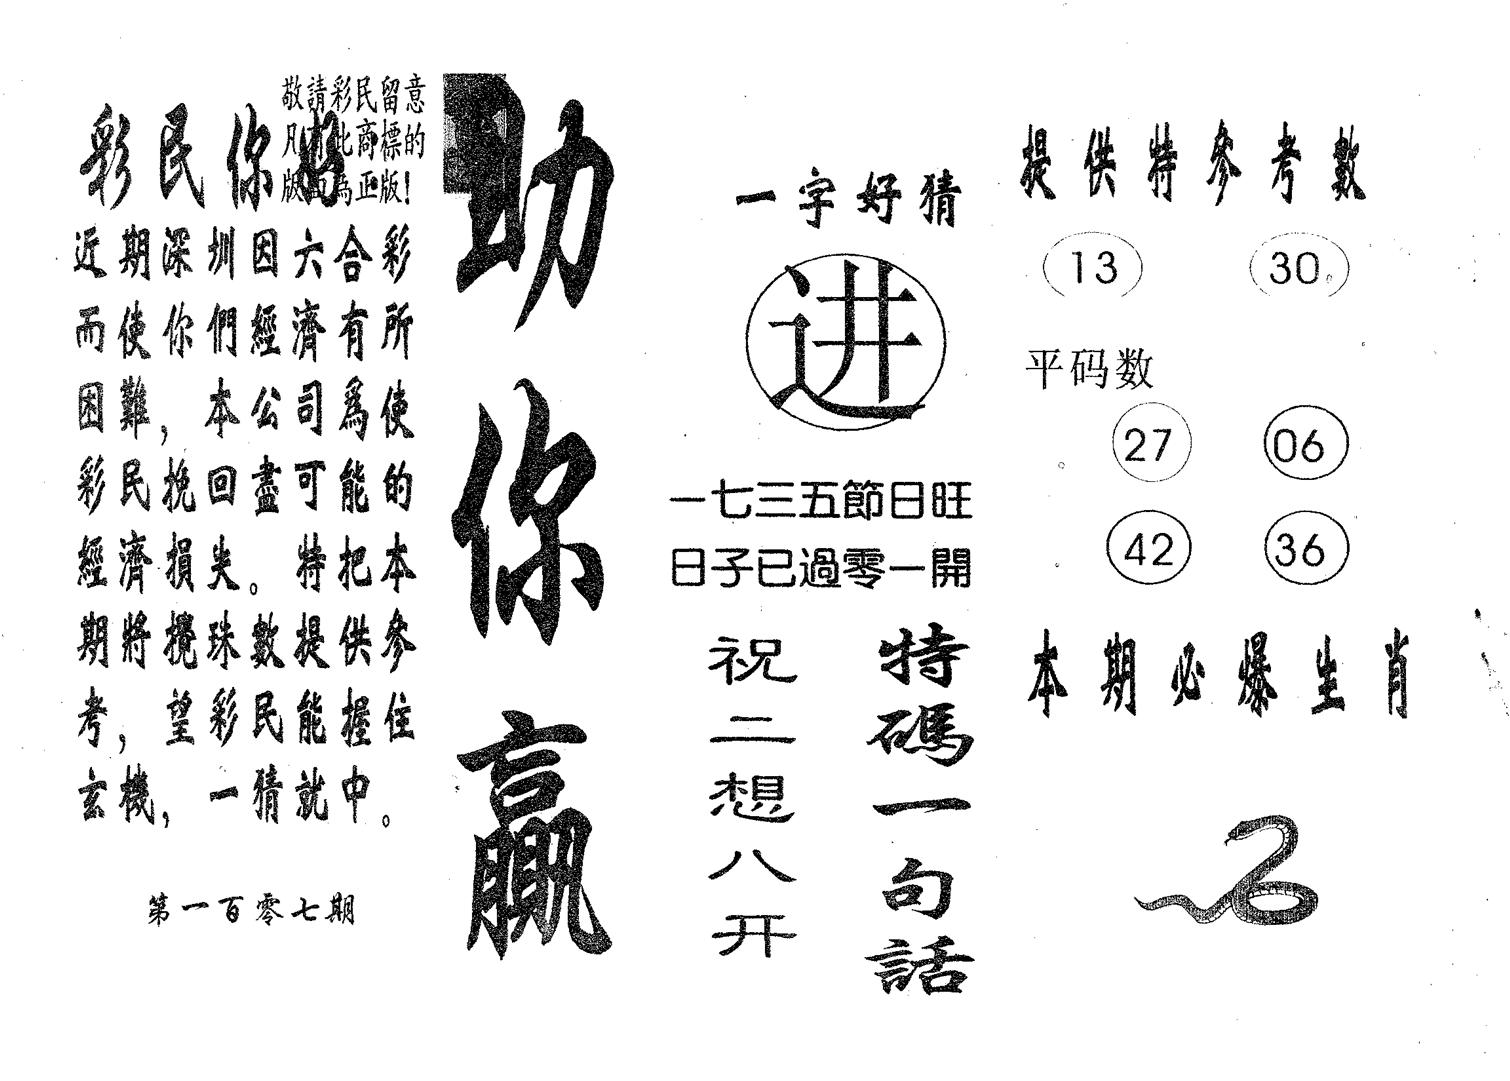 敬請彩民留意
凡有此商標的
版面為正版!
彩民你好
近期深圳因六合彩
而使你們經濟有所
困難，本公司爲使
彩民挽回盡可能的
經濟損失。特把本
期將攪珠數提供參
考，望彩民能握住
玄機，一猜就中。
第一百零七期
助你贏
一字好猜
进
一七三五節日旺
日子已過零一開
特碼一句話
祝二想八开
提供特參考數
13 30
平码数
27 06
42 36
本期必爆生肖